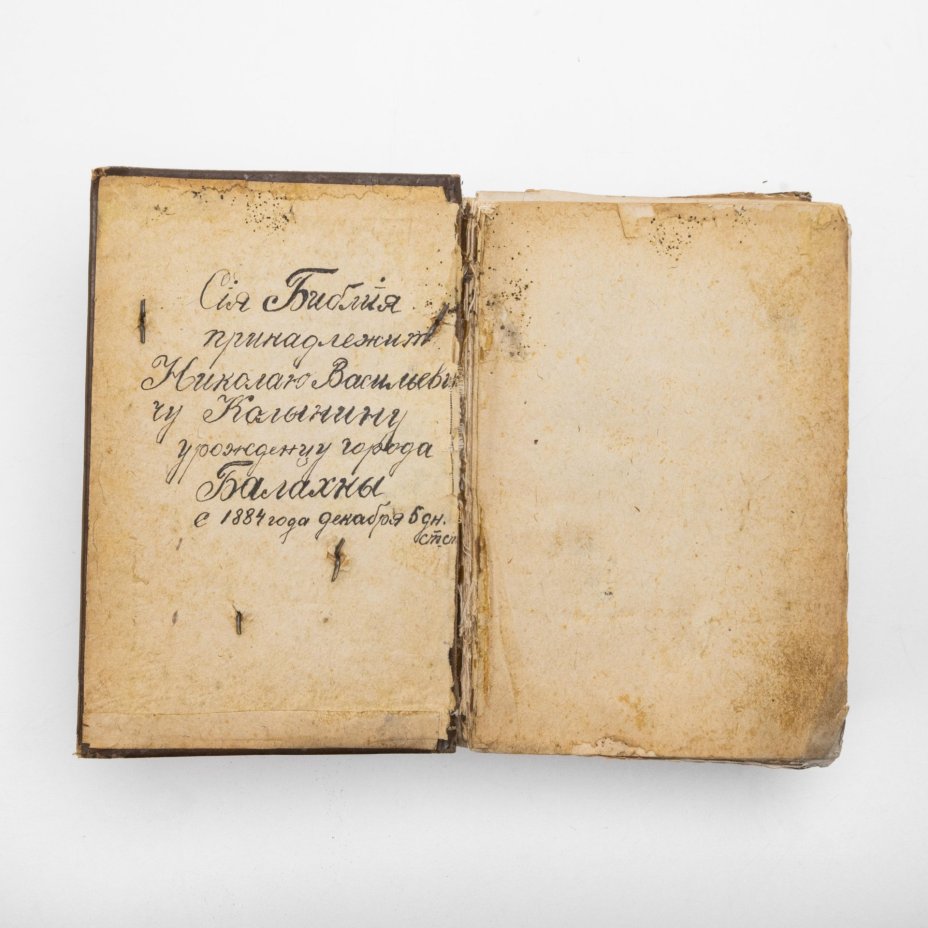 Сія Біблія
принадлежит
Николаю Васильеви
чу Колынину
урожденцу города
Балахны
с 1884 года декабря 5 дн.
ст.ст